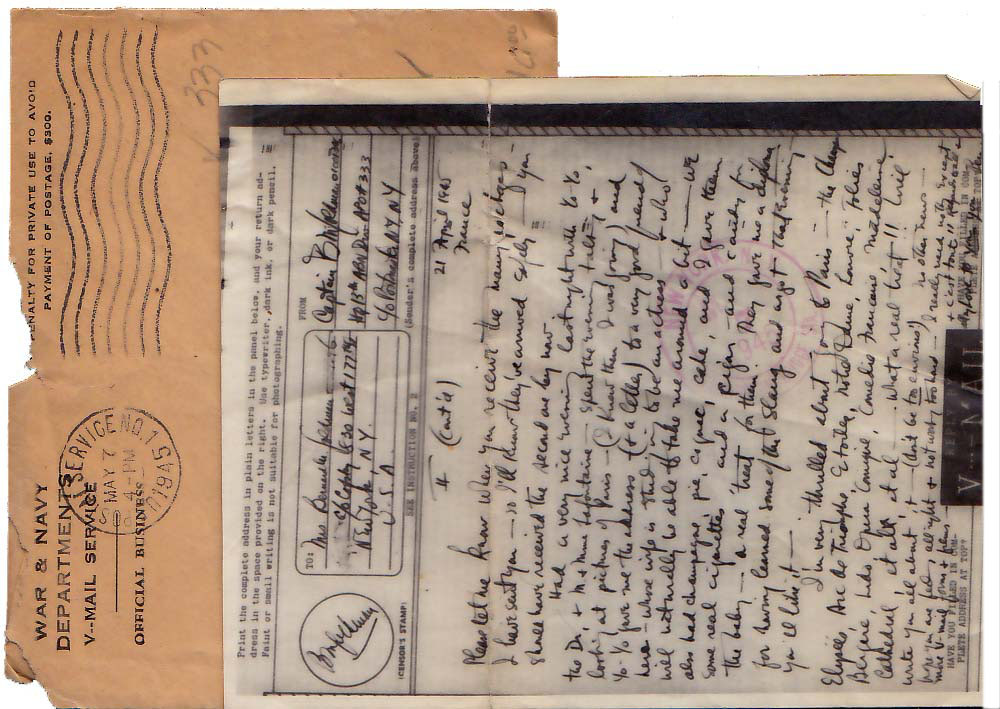 WAR & NAVY
DEPARTMENTS
V--MAIL SERVICE
OFFICIAL BUSINESS
PENALTY FOR PRIVATE USE TO AVOID
PAYMENT OF POSTAGE, $300.
SERVICE NO. 1
MAY 7
4-PM
1945
333
Print the complete address in plain letters in the panel below, and your return ad-
dress in the space provided on the right. Use typewriter, dark ink, or dark pencil.
Faint or small writing is not suitable for photographing.
TO:
Mrs Bernardo
630 West 177 St
New York, N.Y.
U.S.A.
FROM
Captain
Hq 13th Abn Div APO #333
c/o Postmaster NY NY
(CENSOR'S STAMP)
SEE INSTRUCTION NO. 2
(Sender's complete address above)
# (Cont'd)
21 April 1945
France
Please let me know when you receive the
I have sent you — so I'll know they've arrived safely — & you
should have received the second one by now
Had a very nice evening last night with Yo-Yo
the Dr. & Mme — spent the evening talking &
looking at pictures of Paris — (I know them when I was going) and
Yo-Yo gave me the address (& a letter) to a very good friend
here — whose wife is studying to be an actress & who
will naturally be able to take me around a bit — We
also had champagne, pie, cognac, cake, and I gave them
some real cigarettes and a cigar — and candy for
the baby — a real treat for them. They gave me a diploma
for having learned some of the slang and argot that evening
you'll like it —
I'm very thrilled about going to Paris — the Champs
Elysées, Arc de Triomphe, Etoiles, Notre Dame, Louvre, Folies
Bergere, Lido, Opera Comique, Comedie Francaise, Madeleine
Cathedral, et all, et al — What a real treat!! I will
write you all about it — (don't be too envious)!!
no other news —
hope you are feeling all right & not working too hard —
HAVE YOU FILLED IN COM-
PLETE ADDRESS AT TOP?
V···—MAIL
HAVE YOU FILLED IN COM-
PLETE ADDRESS AT TOP?
NEW YORK